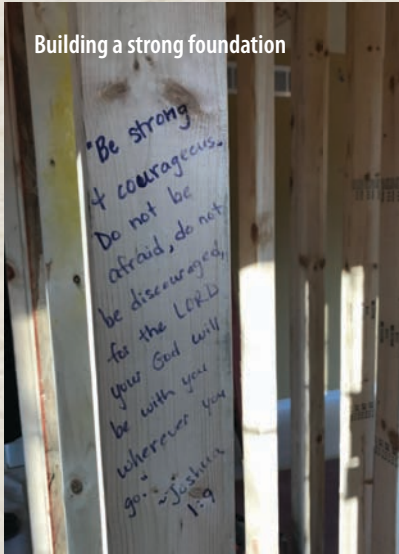 Building a strong foundation
"Be strong
+ courageous.
Do not be
afraid, do not
be discouraged,
for the LORD
your God will
be with you
wherever you
go." ~Joshua
1:9